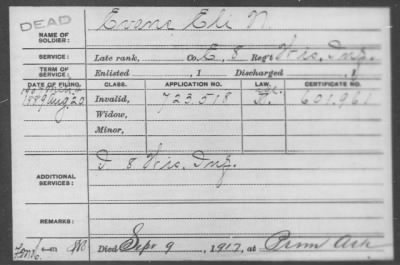 DEAD
NAME OF SOLDIER: Evans Eli N
SERVICE: Late rank, Co. E, 8 Reg't Wis. Inf.
TERM OF SERVICE: Enlisted , 1 Discharged , 1
DATE OF FILING. CLASS. APPLICATION NO. LAW. CERTIFICATE NO.
1889 Aug. 20 Invalid, 723.518 601.961
Widow,
Minor,
ADDITIONAL SERVICES: I 8 Wis. Inf.
REMARKS:
Died Sept 9, 1917, at Ark